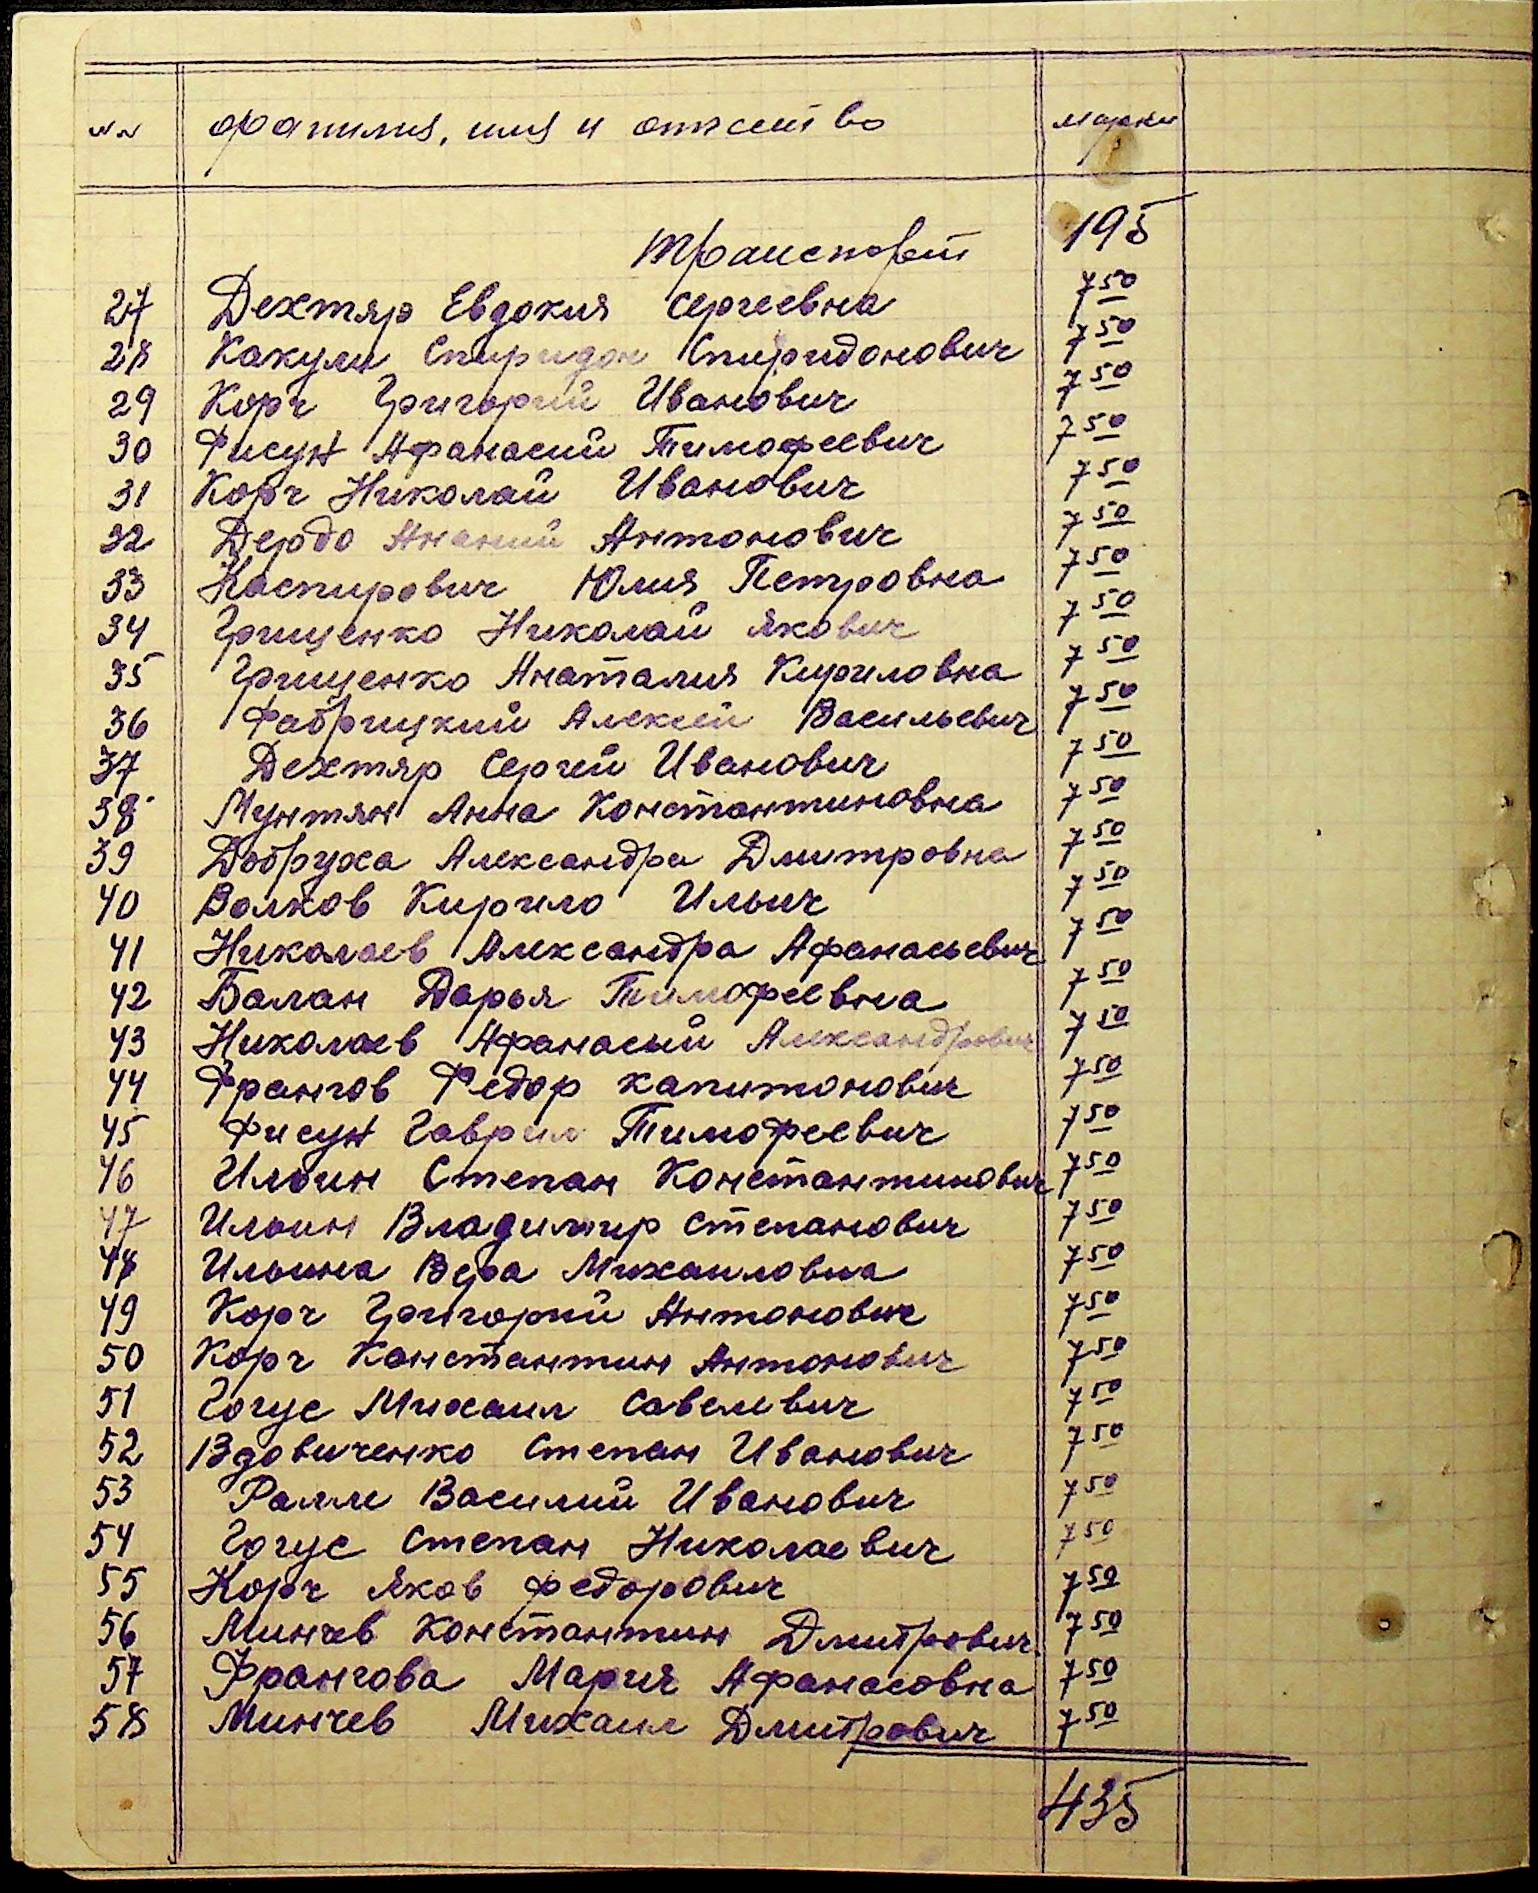 №№ фамилия, имя и отчество марки
транспорт 195
27 Дехтяр Евдокия Сергеевна 7 50
28 Какули Спиридон Спиридонович 7 50
29 Корч Григорий Иванович 7 50
30 Фисун Афанасий Тимофеевич 7 50
31 Корч Николай Иванович 7 50
32 Дердо Ананий Антонович 7 50
33 Каспирович Юлия Петровна 7 50
34 Грищенко Николай Якович 7 50
35 Грищенко Анаталия Кириловна 7 50
36 Фабрицкий Алексей Васильевич 7 50
37 Дехтяр Сергей Иванович 7 50
38 Мунтян Анна Константиновна 7 50
39 Добруха Александра Дмитровна 7 50
40 Волков Кирило Ильич 7 50
41 Николаев Александра Афанасьевич 7 50
42 Балан Дарья Тимофеевна 7 50
43 Николаев Афанасий Александрович 7 50
44 Франгов Федор Капитонович 7 50
45 Фисун Гаврил Тимофеевич 7 50
46 Ильин Степан Константинович 7 50
47 Ильин Владимир Степанович 7 50
48 Ильина Вера Михаиловна 7 50
49 Корч Григорий Антонович 7 50
50 Корч Константин Антонович 7 50
51 Гогус Михаил Савелевич 7 50
52 Вдовиченко Степан Иванович 7 50
53 Рали Василий Иванович 7 50
54 Гогус Степан Николаевич 7 50
55 Корч Яков Федорович 7 50
56 Минчев Константин Дмитрович 7 50
57 Франгова Мария Афанасовна 7 50
58 Минчев Михаил Дмитрович 7 50
435